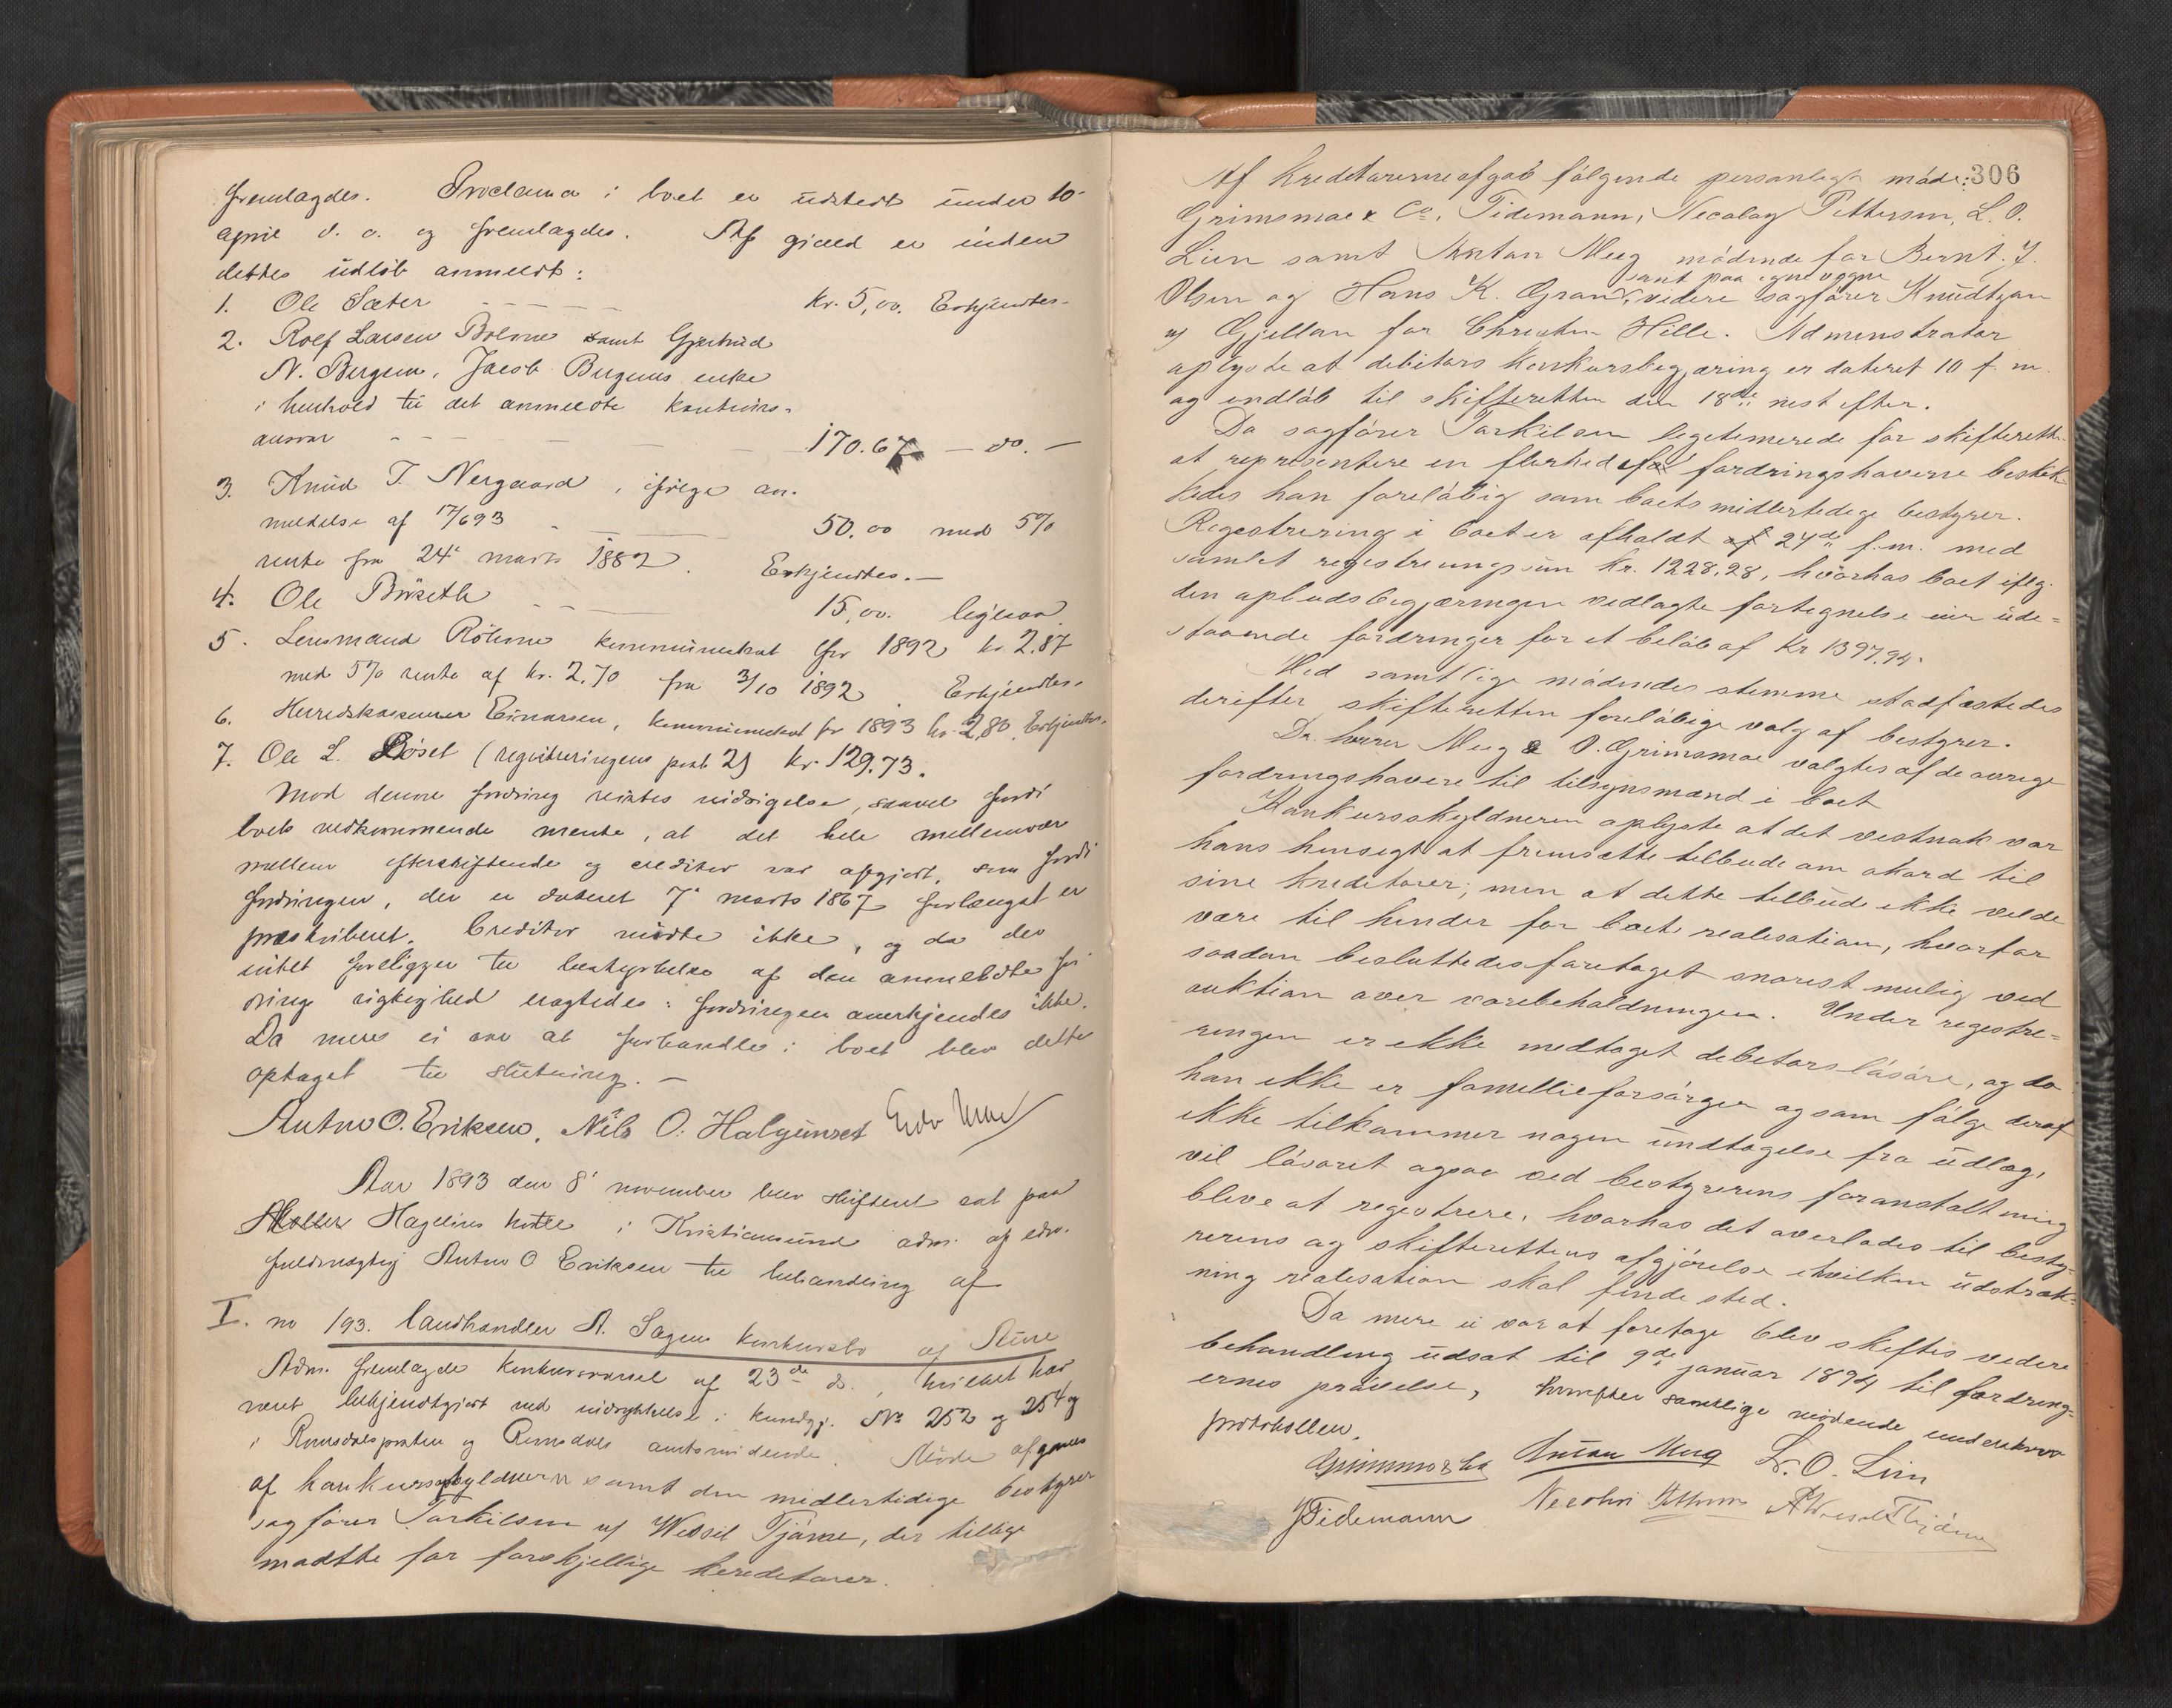 fremlagdes. Proclama i boet er udstedt under 10'
april d. a. og fremlagdes. Af gjæld er inden
dettes udløb anmeldt:
1. Ole Sæter kr. 5,00. Erkjendtes.
2. Rolf Larsen Bolme samt Gjertrud
N. Bergem, Jacob Bergems enke
i henhold til det anmeldte kautions-
ansvar 170.67 — do. —
3. Knud T. Nergaard, ifølge an-
meldelse af 17/6 93 50.00 med 5%
rente fra 24' marts 1882. Erkjendtes. —
4. Ole Büseth 15,00. ligesaa
5. Lensmand Röhme kommuneskat for 1892 kr. 2.87
med 5% rente af kr. 2.70 fra 3/10 1892. Erkjendtes.
6. Herredskasserer Einarsen, kommuneskat for 1893 kr. 2,80. Erkjendtes.
7. Ole L. Böset (registreringens post 2) kr. 129.73.
Mod denne fordring reistes indsigelse, saavel fordi
boets vedkommende mente, at det hele mellemvær
mellem efterskiftende og creditor var afgjort, som fordi
fordringen, der er dateret 7' marts 1867 forlænget er
præskriberet. Creditor mødte ikke, og da der
intet foreligger til bestyrkelse af den anmeldte for-
drings rigtighed eragtedes: fordringen anerkjendes ikke.
Da mere ei var at forhandle i boet blev dette
optaget til slutning. —
Anton O. Eriksen, Nils O. Halgunset
Aar 1893 den 8' november blev skifteret sat paa
Hagelins hotel i Kristiansund adm. af edsv.
fuldmægtig Anton O Eriksen til behandling af
I. no 193. landhandler A. Sagens konkursbo af Aure
Adm. fremlagde konkursvarsel af 23de d., hvilket har
været bekjendtgjort ved indrykkelse i kundgj. No 252 og 254 og
i Romsdalsposten og Romsdals amtstidende. Møde afgaves
af konkursskyldneren samt den midlertidige bestyrer
sagfører Torkilsen v/ Wessel Tjärne, der tillige
mødte for forskjellige kreditorer.
306
Af kreditorerne afgav følgende personligt møde:
Grimsmoe & Co, Tidemann, Necolay Pettersen, L. O.
Lien samt Anton Meeg mødende for Bernt J.
samt paa egne vegne
Olsen og Hans K. Gran, videre sagfører Knudtzon
v/ Gjellan for Christen Hille. Admenstrator
oplyste at debitors konkursbegjæring er dateret 10 f. m.
og endløb til skifteretten den 18de nest efter.
Da sagfører Torkilsen legetemerede for skifteretten
at repræsentere en flerhed af fordringshaverne beskik-
kedes han foreløbig som boets midlertedige bestyrer.
Regestrering i boet er afholdt 24de f. m. med
samlet regestreringssum kr. 1228,28, hvorhos boet iflg.
den opbudsbegjæringen vedlagte fortegnelse eier ude-
staaende fordringer for et beløb af kr 1397.94.
Med samtlige mødendes stemme stadfæstedes
derefter skifteretten foreløbige valg af bestyrer.
De herrer Meeg & O. Grimsmoe valgtes af de øvrige
fordringshavere til tilsynsmænd i boet
Konkursskyldneren oplyste at det vestnok var
hans hensegt at fremsætte telbud om akord til
sine kreditorer; men at dette telbud ikke velde
være til hinder for boets realisation, hvorfor
saadan besluttedes foretaget snarest mulig ved
auktion over varebeholdningen. Under regestre-
ringen er ikke medtaget debetors løsøre, og da
han ikke er famellieforsørger og som følge deraf
ikke tilkommer nogen undtagelse fra udlæg,
vil løsøret ogsaa ved bestyrerens foranstaltning
bleve at regestrere, hvorhos det overlodes til besty-
rerens og skifterettens afgjørelse i hvilken udstræk-
ning realisation skal finde sted.
Da mere ei var at foretage blev skiftets videre
behandling udsat til 9de januar 1894 til fordring-
ernes prøvelse, hvorefter samtlige mødende underskrev
protokollen.
Grimsmo & Co Anton Meeg L. O. Lien
J Tidemann Necolai Pettersen A Wessel Thjärne